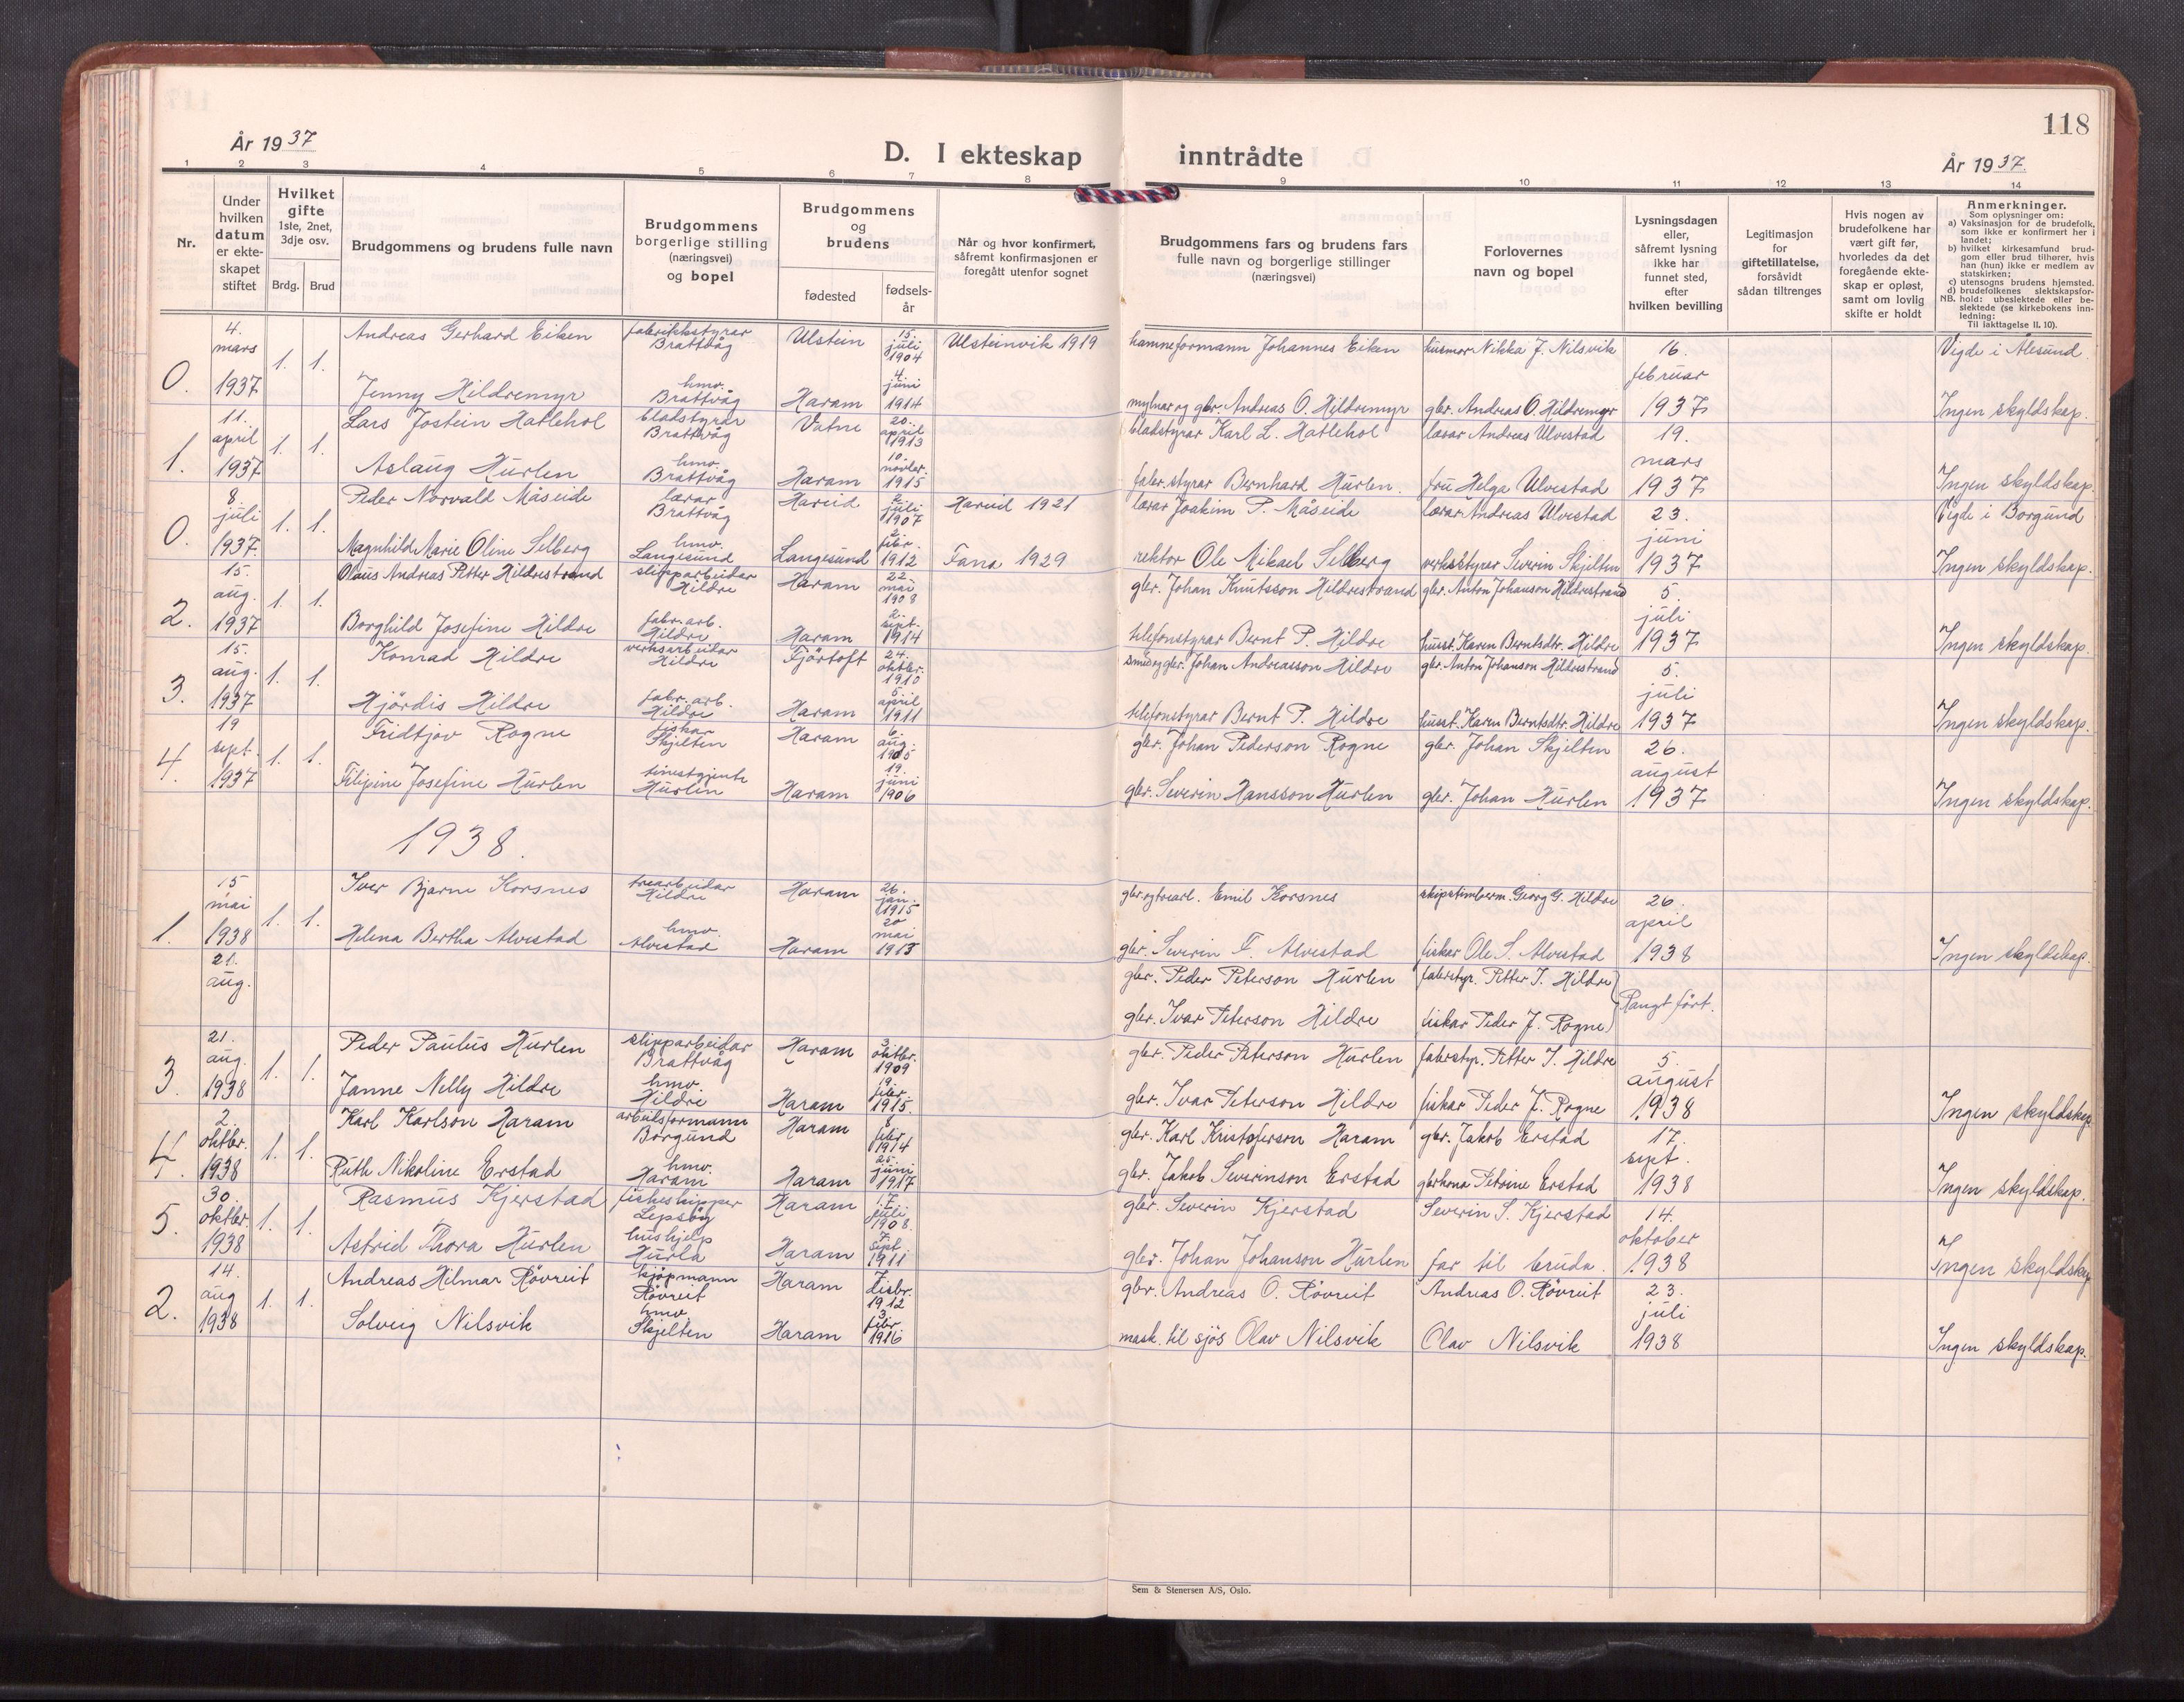 118
År 1937
D. I ekteskap inntrådte
År 1937.
1 2 3 4 5 6 7 8 9 10 11 12 13 14
Nr.
Under hvilken datum er ekte-skapet stiftet
Hvilket gifte 1ste, 2net, 3dje osv.
Brdg. Brud
Brudgommens og brudens fulle navn
Brudgommens borgerlige stilling (næringsvei) og bopel
Brudgommens og brudens
fødested
fødsels-år
Når og hvor konfirmert, såfremt konfirmasjonen er foregått utenfor sognet
Brudgommens fars og brudens fars fulle navn og borgerlige stillinger (næringsvei)
Forlovernes navn og bopel
Lysningsdagen eller, såfremt lysning ikke har funnet sted, efter hvilken bevilling
Legitimasjon for giftetillatelse, forsåvidt sådan tiltrenges
Hvis nogen av brudefolkene har vært gift før, hvorledes da det foregående ekte-skap er opløst, samt om lovlig skifte er holdt
Anmerkninger.
Som oplysninger om:
a) Vaksinasjon for de brudefolk, som ikke er konfirmert her i landet;
b) hvilket kirkesamfund brud-gom eller brud tilhører, hvis han (hun) ikke er medlem av statskirken;
c) utensogns brudens hjemsted.
d) brudefolkenes slektskapsfor-hold: ubeslektede eller be-slektede (se kirkebokens inn-ledning:
NB. Til iakttagelse II, 10).
0. 4. mars 1937 1. 1. Andreas Gerhard Eiken fabrikkstyrar Brattvåg Ulstein 15. juli 1904 Ulsteinvik 1919 hamneformann Johannes Eiken husmor Nikka J. Nilsvik 16. februar 1937 Vigde i Ålesund.
Jenny Hildremyr hmv. Brattvåg Haram 4. juni 1914 mylnar og gbr. Andreas O. Hildremyr gbr. Andreas O. Hildremyr Ingen skyldskap.
1. 11. april 1937 1. 1. Lars Jostein Hatlehol bladstyrar Brattvåg Vatne 20. april 1913 bladstyrar Karl L. Hatlehol lærar Andreas Ulvestad 19. mars 1937
Aslaug Hurlen hmv. Brattvåg Haram 10. novbr. 1915 fabr.styrar Bernhard Hurlen. fru Helga Ulvestad Ingen skyldskap.
0. 8. juli 1937. 1. 1. Peder Norvald Måseide lærar Brattvåg Hareid juli 1907 Hareid 1921 lærar Joakim P. Måseide lærar Andreas Ulvestad 23. juni 1937 Vigde i Borgund
Magnhild Marie Oline Selberg hmv. Langesund Langesund febr. 1912 Fana 1929 rektor Ole Mikael Selberg verksstyrer Severin Skjelten Ingen skyldskap.
2. 15. aug. 1937 1. 1. Olaus Andreas Petter Hildrestrand slipparbeidar Hildre Haram 22. mai 1908 gbr. Johan Knutsson Hildrestrand gbr. Anton Johanson Hildrestrand 5. juli 1937
Borghild Josefine Hildre fabr. arb. Hildre Haram 2. sept. 1914 telefonstyrar Bernt P. Hildre husst. Karen Berntsdtr. Hildre Ingen skyldskap.
3. 15. aug. 1937 1. 1. Konrad Hildre verksarbeidar Hildre Fjörtoft 24. oktbr. 1910 smed og gbr. Johan Andreasson Hildre gbr. Anton Johanson Hildrestrand 5. juli 1937
Hjördis Hildre fabr. arb. Hildre Haram 5. april 1911 telefonstyrar Bernt P. Hildre husst. Karen Berntsdtr. Hildre Ingen skyldskap.
4. 19 sept. 1937 1. 1. Fridtjov Rogne fiskar Skjelten Haram 6. aug. 1905 gbr. Johan Pederson Rogne gbr. Johan Skjelten 26. august 1937
Filipine Josefine Hurlen tenestgjente Hurlen Haram 19. juni 1906 gbr. Severin Hansson Hurlen gbr. Johan Hurlen Ingen skyldskap.
1938.
1. 15 mai 1938 1. 1. Iver Bjarne Korsnes trearbeidar Hildre Haram 26. jan. 1915 gbr. og trearb. Emil Korsnes skipstimberm. Georg G. Hildre 26. april 1938
Helena Bertha Alvestad hmv. Alvestad Haram 20 mai 1915 gbr. Severin F. Alvestad fiskar Ole S. Alvestad Ingen skyldskap.
21. aug. gbr. Peder Peterson Hurlen fabrstyr. Petter I. Hildre
gbr. Ivar Peterson Hildre fiskar Peder J. Rogne Rangt fört.
3 21. aug. 1938 1. 1. Peder Paulus Hurlen slipparbeidar Brattvåg Haram 3. oktbr. 1909 gbr. Peder Peterson Hurlen fabrstyr. Petter I. Hildre 5. august 1938
Janne Nelly Hildre hmv. Hildre Haram 19. febr. 1915. gbr. Ivar Peterson Hildre fiskar Peder J. Rogne Ingen skyldskap
4. 2. oktbr. 1938 1. 1. Karl Karlson Haram arbeidsformann Borgund Haram 8 febr. 1914 gbr. Karl Kristoferson Haram gbr. Jakob Erstad 17. sept. 1938
Ruth Nikoline Erstad hmv. Haram Haram 25. juni 1917 gbr. Jakob Severinson Erstad gbrkona Petrine Erstad Ingen skyldskap.
5. 30. oktbr. 1938 1. 1. Rasmus Kjerstad fiskeskipper Lepsöy Haram 17. juli 1908. gbr. Severin Kjerstad Severin S. Kjerstad 14. oktober 1938
Astrid Thora Hurlen hushjelp Hurla Haram 7. sept. 1911 gbr. Johan Johanson Hurlen far til bruda. Ingen skyldskap
2. 14. aug 1938 1. 1. Andreas Hilmar Rövreit kjöpmann Rövreit Haram 7. desbr. 1912 gbr. Andreas O. Rövreit Andreas O. Rövreit 23. juli 1938
Solveig Nilsvik hmv. Skjelten Haram 3. febr. 1916 mask. til sjös Olav Nilsvik Olav Nilsvik Ingen skyldskap.
Sem & Stenersen A/S, Oslo.